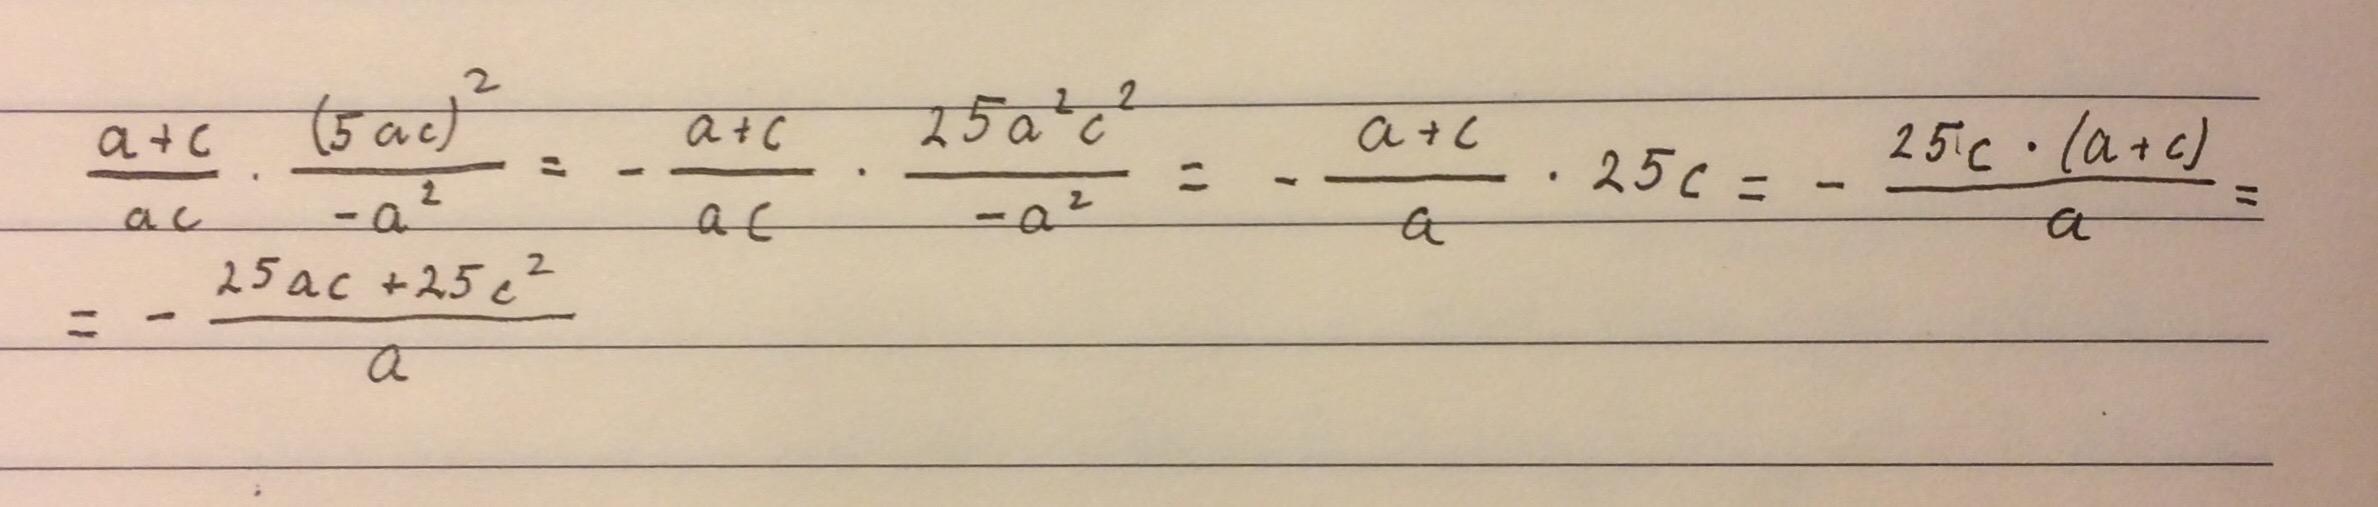 \frac{a+c}{ac} \cdot \frac{(5ac)^2}{-a^2} = -\frac{a+c}{ac} \cdot \frac{25a^2c^2}{-a^2} = -\frac{a+c}{a} \cdot 25c = -\frac{25c \cdot (a+c)}{a} =
= -\frac{25ac+25c^2}{a}